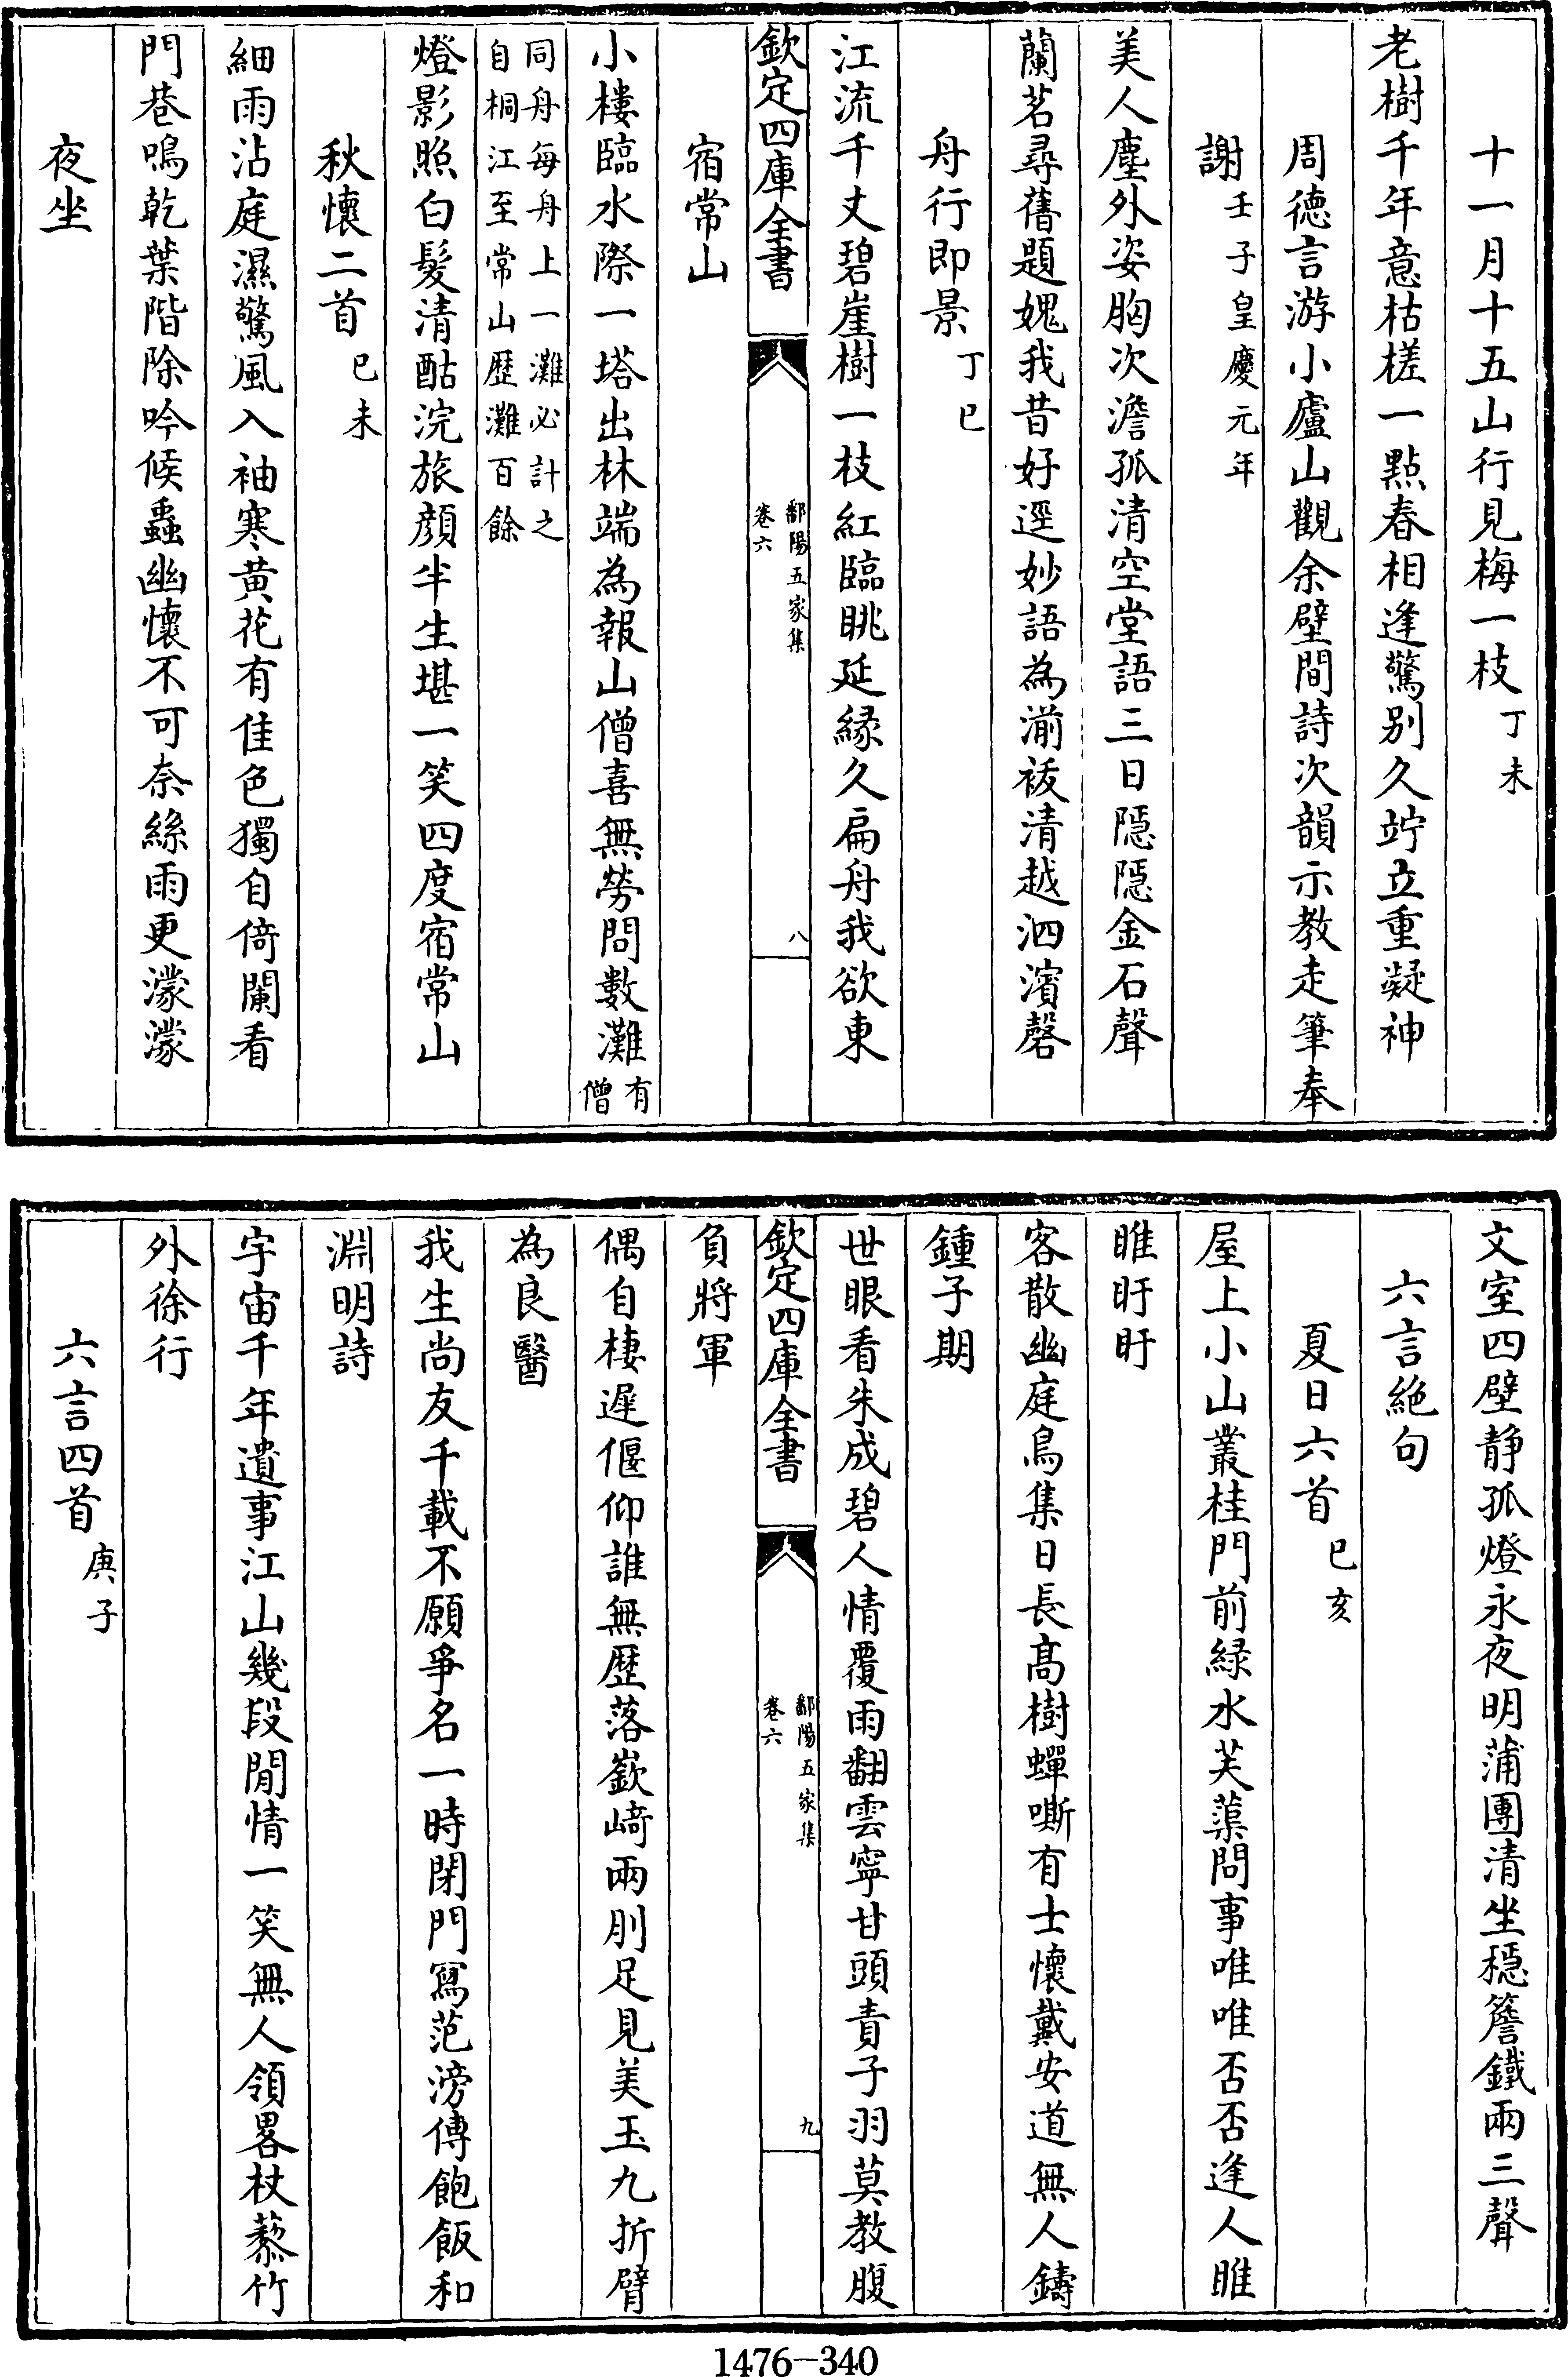 十一月十五山行見梅一枝丁未
老樹千年意枯槎一點春相逢驚别久竚立重凝神
周徳言游小廬山觀余壁間詩次韻示教走筆奉
謝壬子皇慶元年
美人塵外姿胸次澹孤清空堂語三日隠隠金石聲
蘭茗尋舊題媿我昔好逕妙語為湔祓清越泗濱磬
舟行即景丁巳
江流千丈碧崖樹一枝紅臨眺延縁久扁舟我欲東
欽定四庫全書
鄱陽五家集
卷六
八
宿常山
小樓臨水際一塔出林端為報山僧喜無勞問數灘有僧
同舟每舟上一灘必計之
自桐江至常山歴灘百餘
燈影照白髮清酤浣旅顔半生堪一笑四度宿常山
秋懷二首已未
細雨沾庭濕驚風入袖寒黄花有佳色獨自倚闌看
門巷鳴乾葉階除吟候蟲幽懷不可奈絲雨更濛濛
夜坐
文室四壁静孤燈永夜明蒲團清坐穏簷鐵兩三聲
六言絶句
夏日六首已亥
屋上小山叢桂門前緑水芙蕖問事唯唯否否逢人睢
睢盱盱
客散幽庭鳥集日長髙樹蟬嘶有士懷戴安道無人鑄
鍾子期
世眼看朱成碧人情覆雨翻雲寧甘頭責子羽莫教腹
負將軍
欽定四庫全書
鄱陽五家集
卷六
九
偶自棲遲偃仰誰無歴落嶔﨑兩刖足見美玉九折臂
為良醫
我生尚友千載不願爭名一時閉門寫范滂傳飽飯和
淵明詩
宇宙千年遺事江山幾段閒情一笑無人領畧杖藜竹
外徐行
六言四首庚子
1476-340